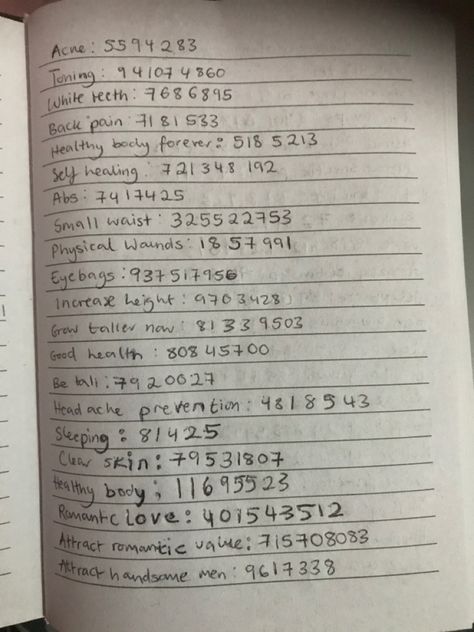 Acne: 5594283
Toning: 941074860
White teeth: 7686895
Back pain: 7181533
Healthy body forever: 5185213
Self healing: 721348192
Abs: 7417425
Small waist: 325522753
Physical Wounds: 1857991
Eyebags: 937517956
Increase height: 9703428
Grow taller now: 81339503
Good health: 80845700
Be tall: 7920027
Head ache prevention: 4818543
Sleeping: 81425
Clear skin: 79531807
Healthy body: 11695523
Romantic love: 401543512
Attract romantic value: 715708083
Attract handsome men: 9617338